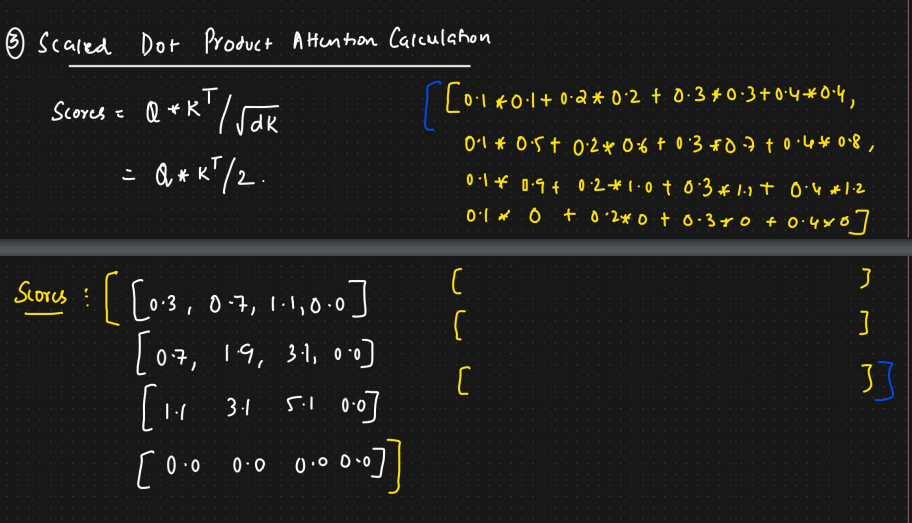 ③ Scaled Dot Product Attention Calculation
Scores = Q * K^T / √dK
= Q * K^T / 2.
[[0.1 * 0.1 + 0.2 * 0.2 + 0.3 * 0.3 + 0.4 * 0.4,
0.1 * 0.5 + 0.2 * 0.6 + 0.3 * 0.7 + 0.4 * 0.8,
0.1 * 0.9 + 0.2 * 1.0 + 0.3 * 1.1 + 0.4 * 1.2
0.1 * 0 + 0.2 * 0 + 0.3 * 0 + 0.4 * 0]
[ ]
[ ]
[ ]]
Scores : [[0.3, 0.7, 1.1, 0.0]
[0.7, 1.9, 3.1, 0.0]
[1.1 3.1 5.1 0.0]
[0.0 0.0 0.0 0.0]]